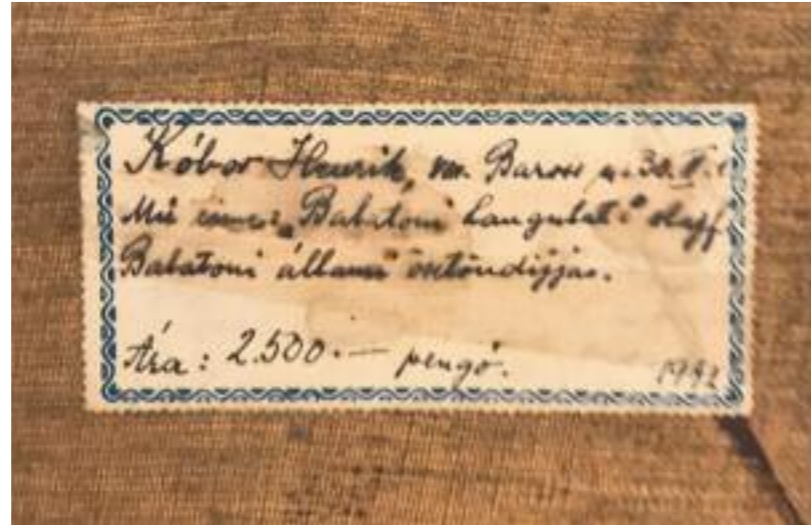 Kóbor Henrik, VIII. Baross u. 30. II. 
Mű címe: „Balatoni hangulat" olajf.
Balatoni állami ösztöndíjjas.
Ára: 2.500.— pengő.
1942